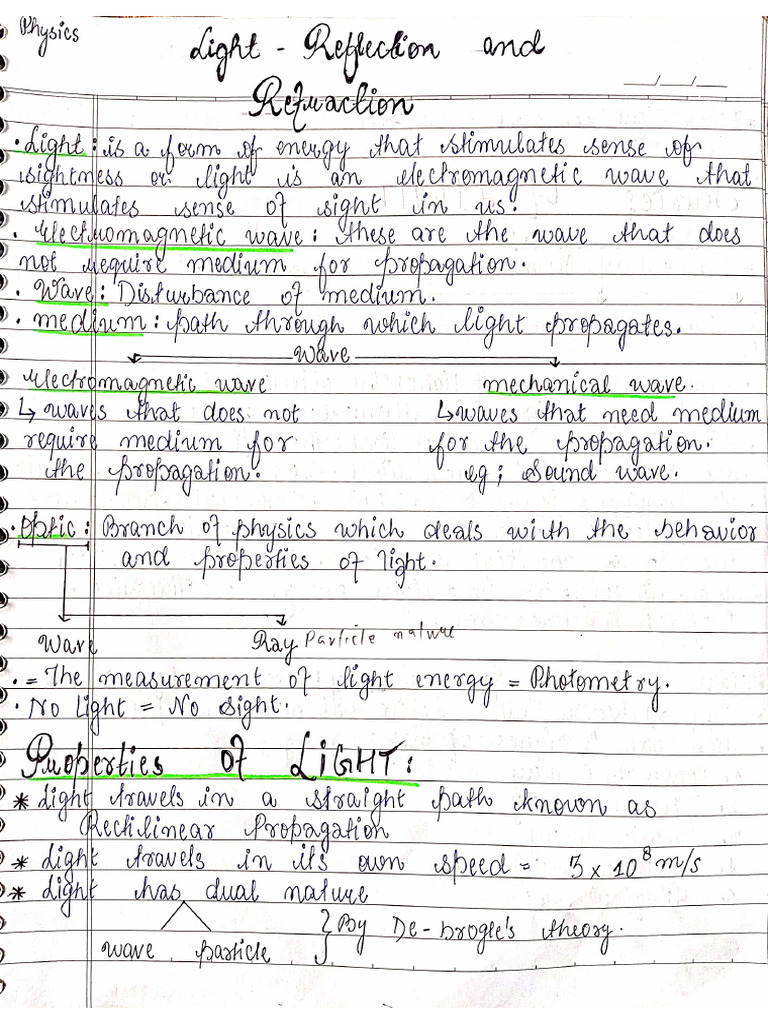 Physics
Light - Reflection and
Refraction
• Light : is a form of energy that stimulates sense of
sightness or light is an electromagnetic wave that
stimulates sense of sight in us.
• Electromagnetic wave : these are the wave that does
not require medium for propagation.
• Wave : Disturbance of medium.
• medium : path through which light propagates.
Wave
Electromagnetic wave mechanical wave.
↳ waves that does not ↳ waves that need medium
require medium for for the propagation.
the propagation. eg ; sound wave.
• Optic : Branch of physics which deals with the behavior
and properties of light.
Wave Ray Particle nature
• = The measurement of light energy = Photometry.
• No Light = No Sight.
Properties of LiGHT :
* Light travels in a straight path known as
Rectilinear Propagation
* Light travels in its own speed = 3 x 10⁸ m/s
* Light has dual nature
wave particle } By De-brogle's theory.